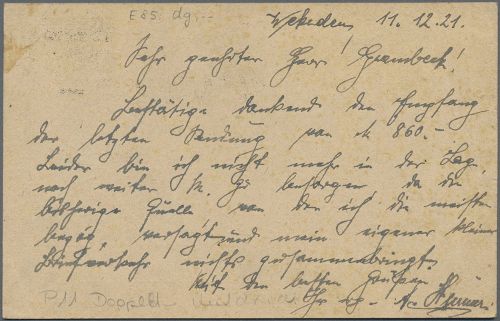 E85. dg.--
11. 12. 21.
Sehr geehrter Herr Grambeck!
Bestätige dankend den Empfang
der letzten Sendung von M 860.-
Leider bin ich nicht mehr in der Lage,
noch weiter M. G. besorgen, da die
bisherige Quelle von der ich die meisten
bezog, versagt und mein eigener kleiner
Briefverkehr nichts zusammenbringt.
Mit den besten Grüßen
Ihr erg.
P11 Doppeld